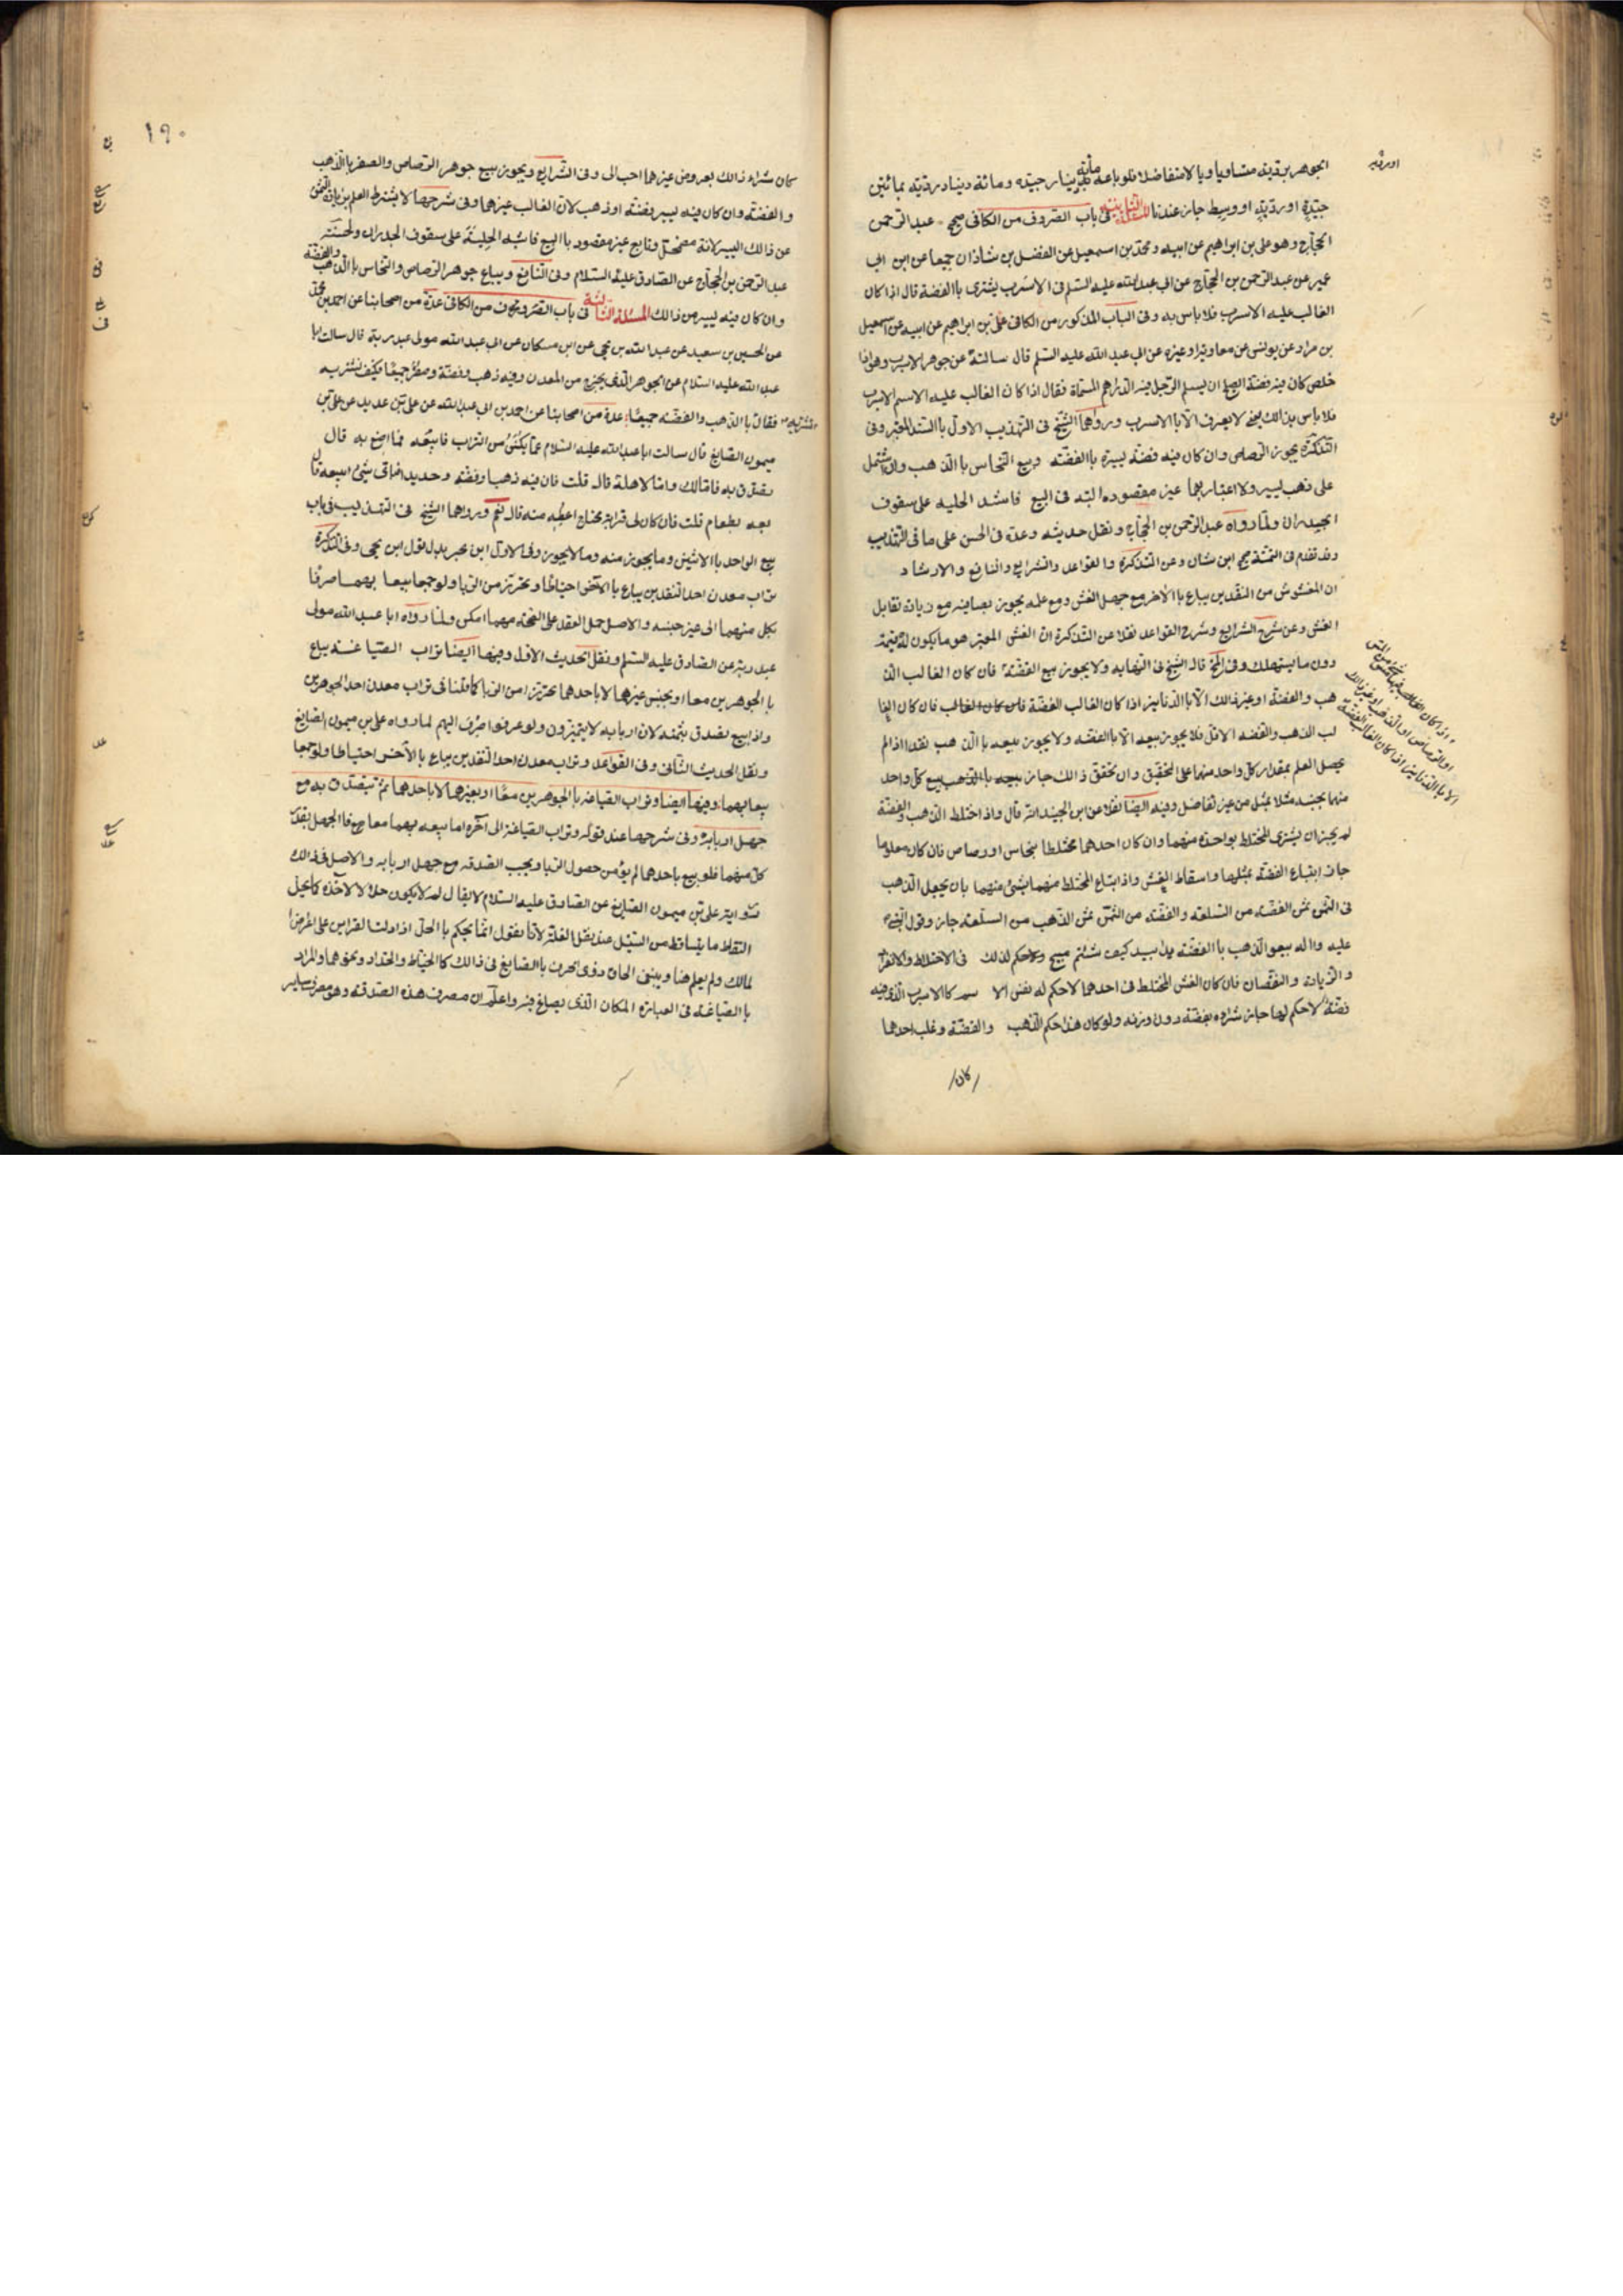 الجوهر بردية متساويا ولا متفاضلا فلو باعه مائة دينار جيده ومائة دينار ردية بمائتين
جيدة او ردية او وسط جاز عندنا المسئلة الثانية في باب الصروف من الكافي صحيح عبد الرحمن
الحجاج وهو علي بن ابراهيم عن ابيه ومحمد بن اسمعيل عن الفضل بن شاذان جميعا عن ابن ابي
عمير عن عبد الرحمن بن الحجاج عن ابي عبد الله عليه السلم في الاسرب يشترى باالفضة قال اذا كان
الغالب عليه الاسرب فلا باس به وفي الباب المذكور من الكافي علي بن ابراهيم عن ابيه عن اسمعيل
بن مرار عن يونس عن معاوية او غيره عن ابي عبد الله عليه السلم قال سالته عن جوهر الاسرب وهو اذا
خلص كان فيه فضة ايصلح ان يسلم الرجل فيه الدراهم المسماة فقال اذا كان الغالب عليه الاسم الاسرب
فلا باس بذالك يعني لا يعرف الا باالاسرب ورواهما الشيخ في التهذيب الاول باالسند المعتبر وفي
التذكرة يجوز الرصاص وان كان فيه فضة يسيرة باالفضة وبيع النحاس باالذهب وان اشتمل
على ذهب يسير ولا اعتبار بهما غير مقصوده البته في البيع فاشبه الحليه على سقوف
الجيدران ولما رواه عبد الرحمن بن الحجاج ونقل حديثه وعده في الحسن على ما في التهذيب
وقد تقدم في التتمة صحيح ابن سنان وعن التذكرة والقواعد والشرايع والنافع والارشاد
ان المغشوش من النقدين يباع باالاخر مع جهل الغش ومع علمه يجوز بصافيه مع زيادة تقابل
الغش وعن شرح الشرايع وشرح القواعد نقلا عن التذكرة ان الغش المعتبر هو ما يكون له قيمة
دون ما يستهلك وفي المخ قال الشيخ في النهايه ولا يجوز بيع الفضة فان كان الغالب الذ
هب والفضة او غير ذالك الا باالدنانير اذا كان الغالب الفضة فان كان الغالب فان كان الغا
لب الذهب والفضه الاقل فلا يجوز بيعه الا باالفضه ولا يجوز بيعه باالذهب نقدا اذا لم
يحصل العلم بمقدار كل واحد منهما على التحقيق وان تحقق ذالك جاز بيعه باالذهب بيع كل واحد
منهما بجنسه مثلا بمثل من غير تفاضل وفيه ايضا نقلا عن ابن الجنيد انه قال واذا اختلط الذهب والفضة
لم يجز ان يشترى المختلط بواحدة منهما وان كان احدهما مختلطا بنحاس او رصاص فان كان معلوما
جاز ابتياع الفضة بمثلها واسقاط الغش واذا ابتاع المختلط منهما بشئ منهما بان يجعل الذهب
في الثمن ثمن الفضة من السلعة والفضة من الثمن ثمن الذهب من السلعة جاز وقول النبي ص
عليه واله بيعو الذهب باالفضة يدا بيد كيف شئتم مبيح وحكم لذلك في الاختلاط والانفراد
والزيادة والنقصان فان كان الغش المختلط في احدهما لا حكم له نفس الا سم كاالاسرب الذي فيه
فضة لا حكم لها جاز شراؤه بفضة دون وزنه ولو كان هذا حكم الذهب والفضة وغلب احدهما
كان
او ردية
اذا كان الغالب فيها النحاس
او الرصاص او الذهب او غير ذالك
الا باالدنانير اذا كان الغالب الفضة
١٩٠
كان شراء ذالك بعروض غيرهما احب الى وفي الشرايع ويجوز بيع جوهر الرصاص والصفر باالذهب
والفضة وان كان فيه يسير فضة او ذهب لان الغالب غيرهما وفي شرحها لا يشترط العلم بزيادة الثمن
عن ذالك اليسير لانه مضمحل وتابع غير مقصود باالبيع فاشبه الحلية على سقوف الجدران ولحسنة
عبد الرحمن بن الحجاج عن الصادق عليه السلام وفي النافع ويباع جوهر الرصاص والنحاس باالذهب والفضة
وان كان فيه يسير من ذالك المسئلة الثالثة في باب الصروف من الكافي عدة من اصحابنا عن احمد بن محمد
عن الحسين بن سعيد عن عبد الله بن يحيى عن ابن مسكان عن ابي عبد الله مولى عبد ربه قال سالت ابا
عبد الله عليه السلام عن الجوهر الذي يخرج من المعدن وفيه ذهب وفضة وصفر جميعا فكيف نشتريه
فقال باالذهب والفضه جميعا عدة من اصحابنا عن احمد بن ابي عبد الله عن علي بن حديد عن علي بن
ميمون الصايغ قال سالت ابا عبد الله عليه السلام عما يكنس من التراب فابيعه فما اصنع به قال
تصدق به فاما لك واما لاهله قال قلت فان فيه ذهبا وفضة وحديدا فباي شئ ابيعه قال
بعه بطعام قلت فان كان لي قرابة محتاج اعطيه منه قال نعم ورواهما الشيخ في التهذيب في باب
بيع الواحد باالاثنين وما يجوز منه وما لا يجوز وفي الاول ابن بحر بدل قول ابن يحيى وفي التذكرة
تراب معدن احد النقدين يباع باالاخر احتياطا وتحرزا من الربا ولو جمعا بيعا بهما صرفا
بكل منهما الى غير جنسه والاصل حمل العقد على الصحة مهما امكن ولما رواه ابا عبد الله مولى
عبد ربه عن الصادق عليه السلم ونقل الحديث الاول وفيها ايضا تراب الصياغة يباع
باالجوهرين معا او بجنس غيرهما لا باحدهما تحرزا من الربا كما قلنا في تراب معدن احد الجوهرين
واذا بيع تصدق بثمنه لان اربابه لا يتميزون ولو عرفوا صرف اليهم لما رواه علي بن ميمون الصايغ
ونقل الحديث الثاني وفي القواعد وتراب معدن احد النقدين يباع باالآخر احتياطا ولو جمعا
بيعا بهما وفيها ايضا وتراب الصياغه باالجوهرين معا او بغيرهما لا باحدهما ثم تيصدق به مع
جهل اربابه وفي شرحها عند قوله وتراب الصياغة الى آخره اما بيعه بهما معا صح فاالجهل بقدر
كل منهما فلو بيع باحدهما لم يؤمن حصول الربا ويجب الصدقه مع جهل اربابه والاصل في ذالك
رواية علي بن ميمون الصايغ عن الصادق عليه السلام لا يقال لم لا يكون حلالا لآخذه كما يحل
التقاط ما يتساقط من السنبل عند نقل الغلة لأنا نقول انما يحكم باالحل اذا دلت القراين على اعراض
المالك ولم يعلم هنا وينبغي الحاق ذوي الحرف باالصايغ في ذالك كاالخياط والحداد ونحوهما والمراد
باالصياغة في العبارة المكان الذي يصاغ فيه واعلم ان مصرف هذه الصدقة وهو مصرف ساير